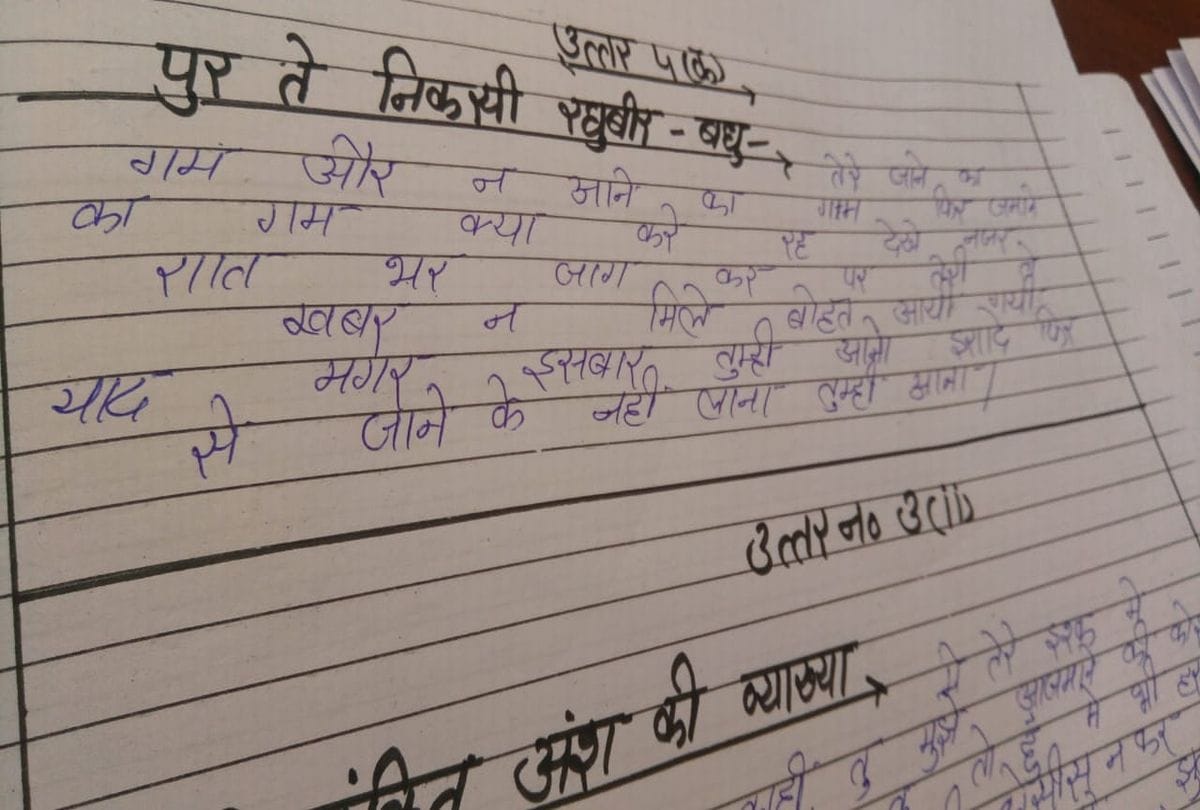 उत्तर ५(क)
पुर ते निकसी रघुबीर-बधु-
गम और न आने का तेरे जाने का
का गम क्या करे गम फिर जमाने
रात भर जाग कर रह देखे नजर
खबर न मिले पर तेरी
याद मगर इसबार बोहत आयी गयी
से जाने के नही लाना तुम्ही आना इरादे फिर
तुम्ही आना।
उत्तर न० 3(ii)
अंश की व्याख्या
तु मुझे से तेरे इश्क मे
तो हुँ आजमाने की
मे भी
न कर